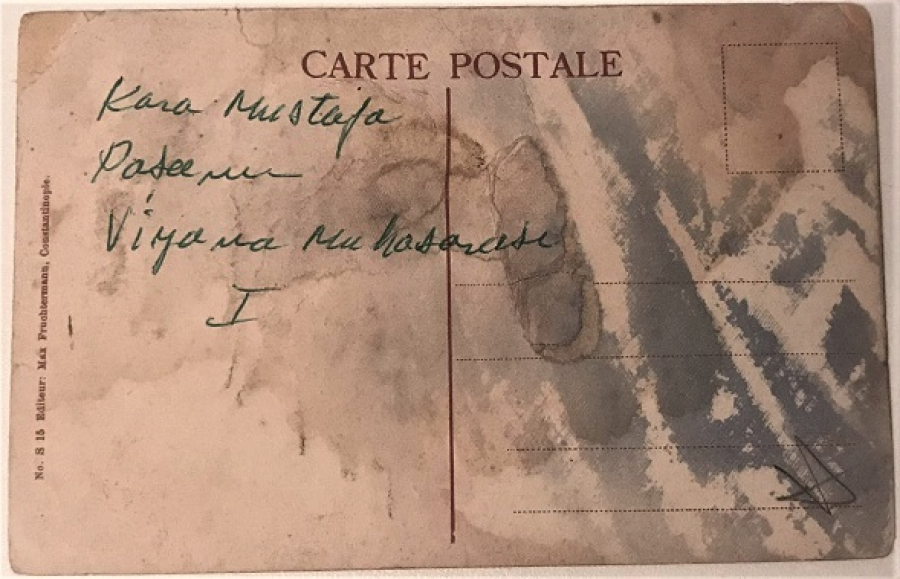 CARTE POSTALE
Kara Mustafa
Paşanın
Viyana Muhasarası
I
No. S 15 Editeur: Max Fruchtermann, Constantinople.